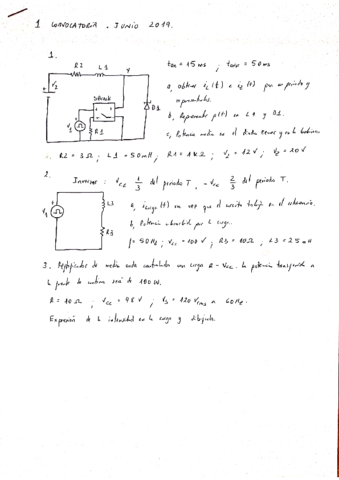 1 CONVOCATORIA . JUNIO 2019.
1.
R2 L1 Y
V2
SBreak
V1
R1
D1
ton = 15 ms ; toff = 50 ms
a, obtener iL(t) e i2(t) por un periodo y
representarlas.
b, Representar p(t) en L1 y D1.
c, Potencia media en el diodo zener y en la bobina
R2 = 3 Ω ; L1 = 50 mH ; R1 = 1 K Ω ; V1 = 12 V ; V2 = 30 V
2.
Inversor : Vcc 1/3 del periodo T , - Vcc 2/3 del periodo T.
V1
L3
R3
a, icarga (t) una vez que el circuito trabaja en el estacionario.
b, Potencia absorbida por la carga.
f = 50 Hz ; Vcc = 100 V ; R3 = 10 Ω , L3 = 25 mH
3. Rectificador de media onda controlado con carga R - Vcc. La potencia transferida a
la fuente de continua será de 100 W.
R = 10 Ω ; Vcc = 48 V ; Vs = 120 Vrms a 60 Hz.
Expresión de la intensidad en la carga y dibujarla.